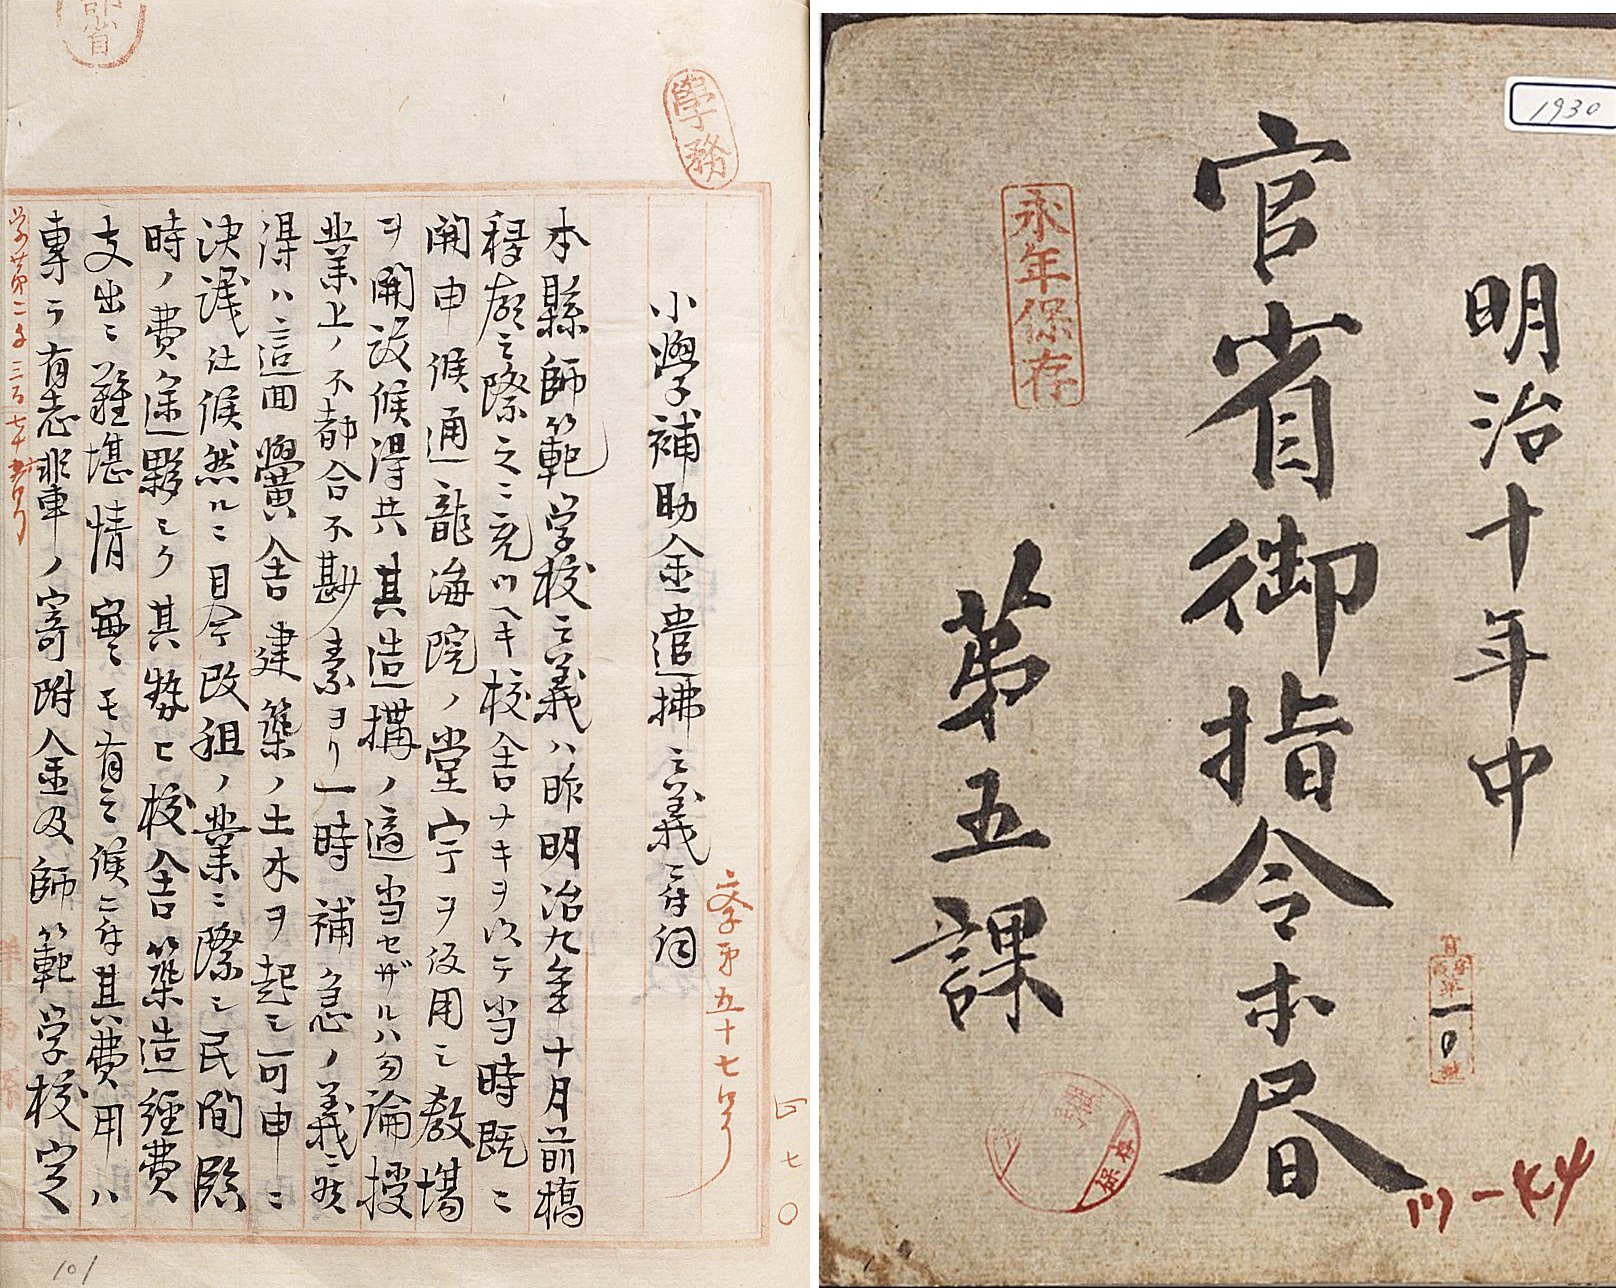 學務
小學補助金遣拂之義ニ付伺
文学第五十七号
四七〇
本縣師範学校之義ハ昨明治九年十月前橋
移廳之際之ニ充ツヘキ校舎ナキヲ以テ当時既ニ
開申候通龍海院ノ堂宇ヲ仮用シ教場
ヲ開設候得共其造搆ノ適当セザルハ勿論授
業上ノ不都合不尠素ヨリ一時補急ノ義ニ候
得ハ這回黌舎建築ノ土木ヲ起シ可申ニ
決議仕候然ルニ目今改租ノ業ニ際シ民間臨
時ノ費途夥シク其勢ヒ校舎築造経費
支出ニ難堪情實モ有之候ニ付其費用ハ
專ラ有志輩ノ寄附金及師範学校定
学第二千三百七十五号
101
1930
明治十年中
官省御指令本書
第五課
永年保存